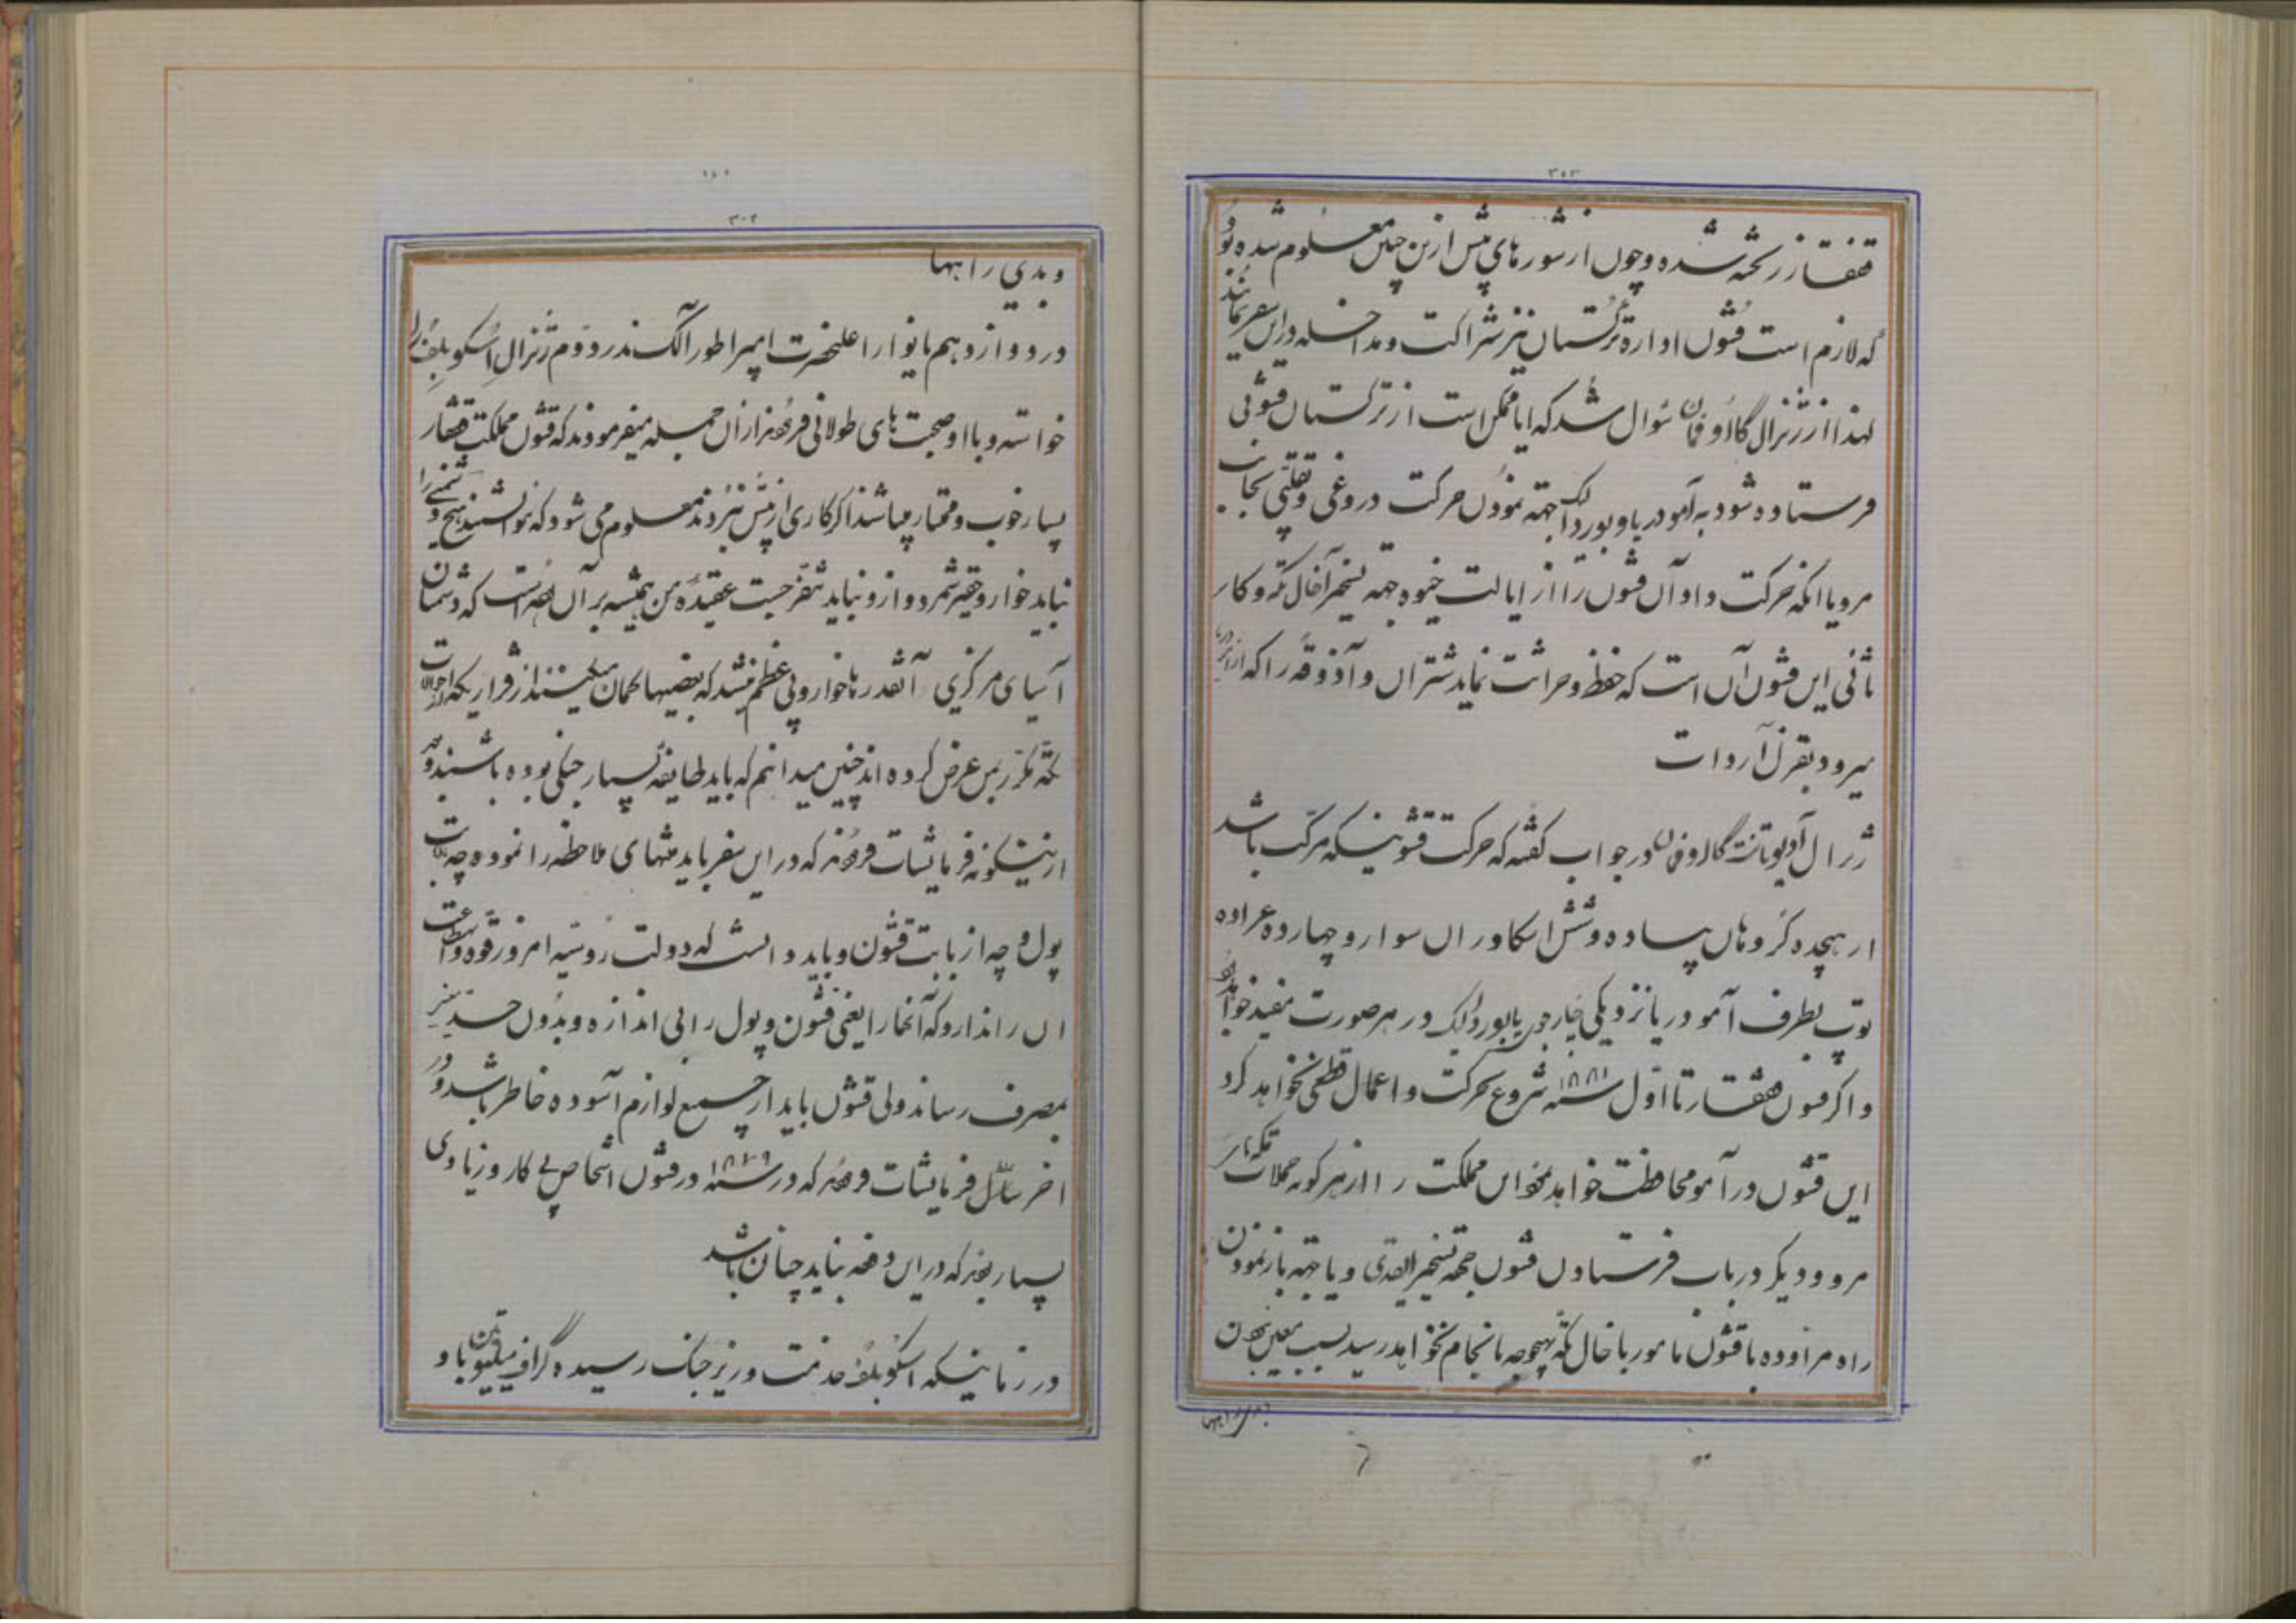 ۳۰۳
قفقاز ریخته شده و چون از شورهای پیش ازین چنین معلوم شده بود
که لازم است قشون اداره ترکستان نیز شراکت و مداخله در این سفر نمایند
لهذا از ژنرال گااوفمان سئوال شد که ایا ممکن است از ترکستان قشونی
فرستاده شود به آمودریا و بوردالک جهته نمودن حرکت دروغی و تقلبی بجانب
مرو یا انکه حرکت داد آن قشون را از ایالت خیوه جهته تسخیر آخال تکه و کار
ثانی این قشون آن است که حفظ و حراثت نماید شتران و آذوقه را که از
میرود بقزل آروات
ژنرال آدیوتانت گااوفمان در جواب گفته که حرکت قشونیکه مرکب باشد
از هیجده گروهان پیاده و شش اسکادران سوار و چهارده عراده
توپ بطرف آمودریا نزدیکی چارجوی یا بوردالک در هر صورت مفید خواهد بود
و اگر قشون قفقاز تا اول سنه ۱۸۸۱ شروع بحرکت و اعمال قطعی نخواهد کرد
این قشون در آمو محافظت خواهد نمود این مملکت را از هر گونه حملات تکه‌های
مرو و دیگر در باب فرستادن قشون جهته تسخیر و یا جهته باز نمودن
راه مراوده با قشون مامور باخال تکه بهیچوجه بانجام نخواهد رسید بسبب معین نبودن
و بدی راهها
۳۰۴
و بدی راهها
در دوازدهم یانوار اعلیحضرت ایمپراطور الکسندر دوم ژنرال اسکوبلف را
خواسته و با او صحبت های طولانی فرموند از آن جمله میفرمودند که قشون مملکت قفقاز
بسیار خوب و ممتاز میباشد اگر کاری از پیش نبردند معلوم می شود که نتوانستند هیچ دشمنی را
نباید خوار و حقیر شمرد و ازو نباید متنفر جست عقیدهٔ من همیشه بر آن بوده است که دشمنان
آسیای مرکزی آنقدرها خوار و بی عظم نیستند که بعضیها گمان میکنند از قراریکه از حالات
تکه مکرر بمن عرض کرده اند چنین میدانم که باید طایفه بسیار جنگی بوده باشند و بعد
ازینگونه فرمایشات فرمودند که در این سفر باید منتهای ملاحظه را نموده چه از بابت
پول و چه از بابت قشون و باید دانست که دولت روسیه امروز قوه و استطاعت
ان را ندارد که آنجا را یعنی قشون و پول را بی اندازه و بدون حد نیز
بمصرف رساند ولی قشون باید از جمیع لوازم آسوده خاطر باشد و در
اخر مسائل فرمایشات فرمودند که در سنه ۱۸۷۹ در قشون اشخاص بی کار و زیادی
بسیار بودند که در این دفعه نباید چنان باشد
در زمانیکه اسکوبلف خدمت وزیر جنگ رسیده گراف میلیوتین با او